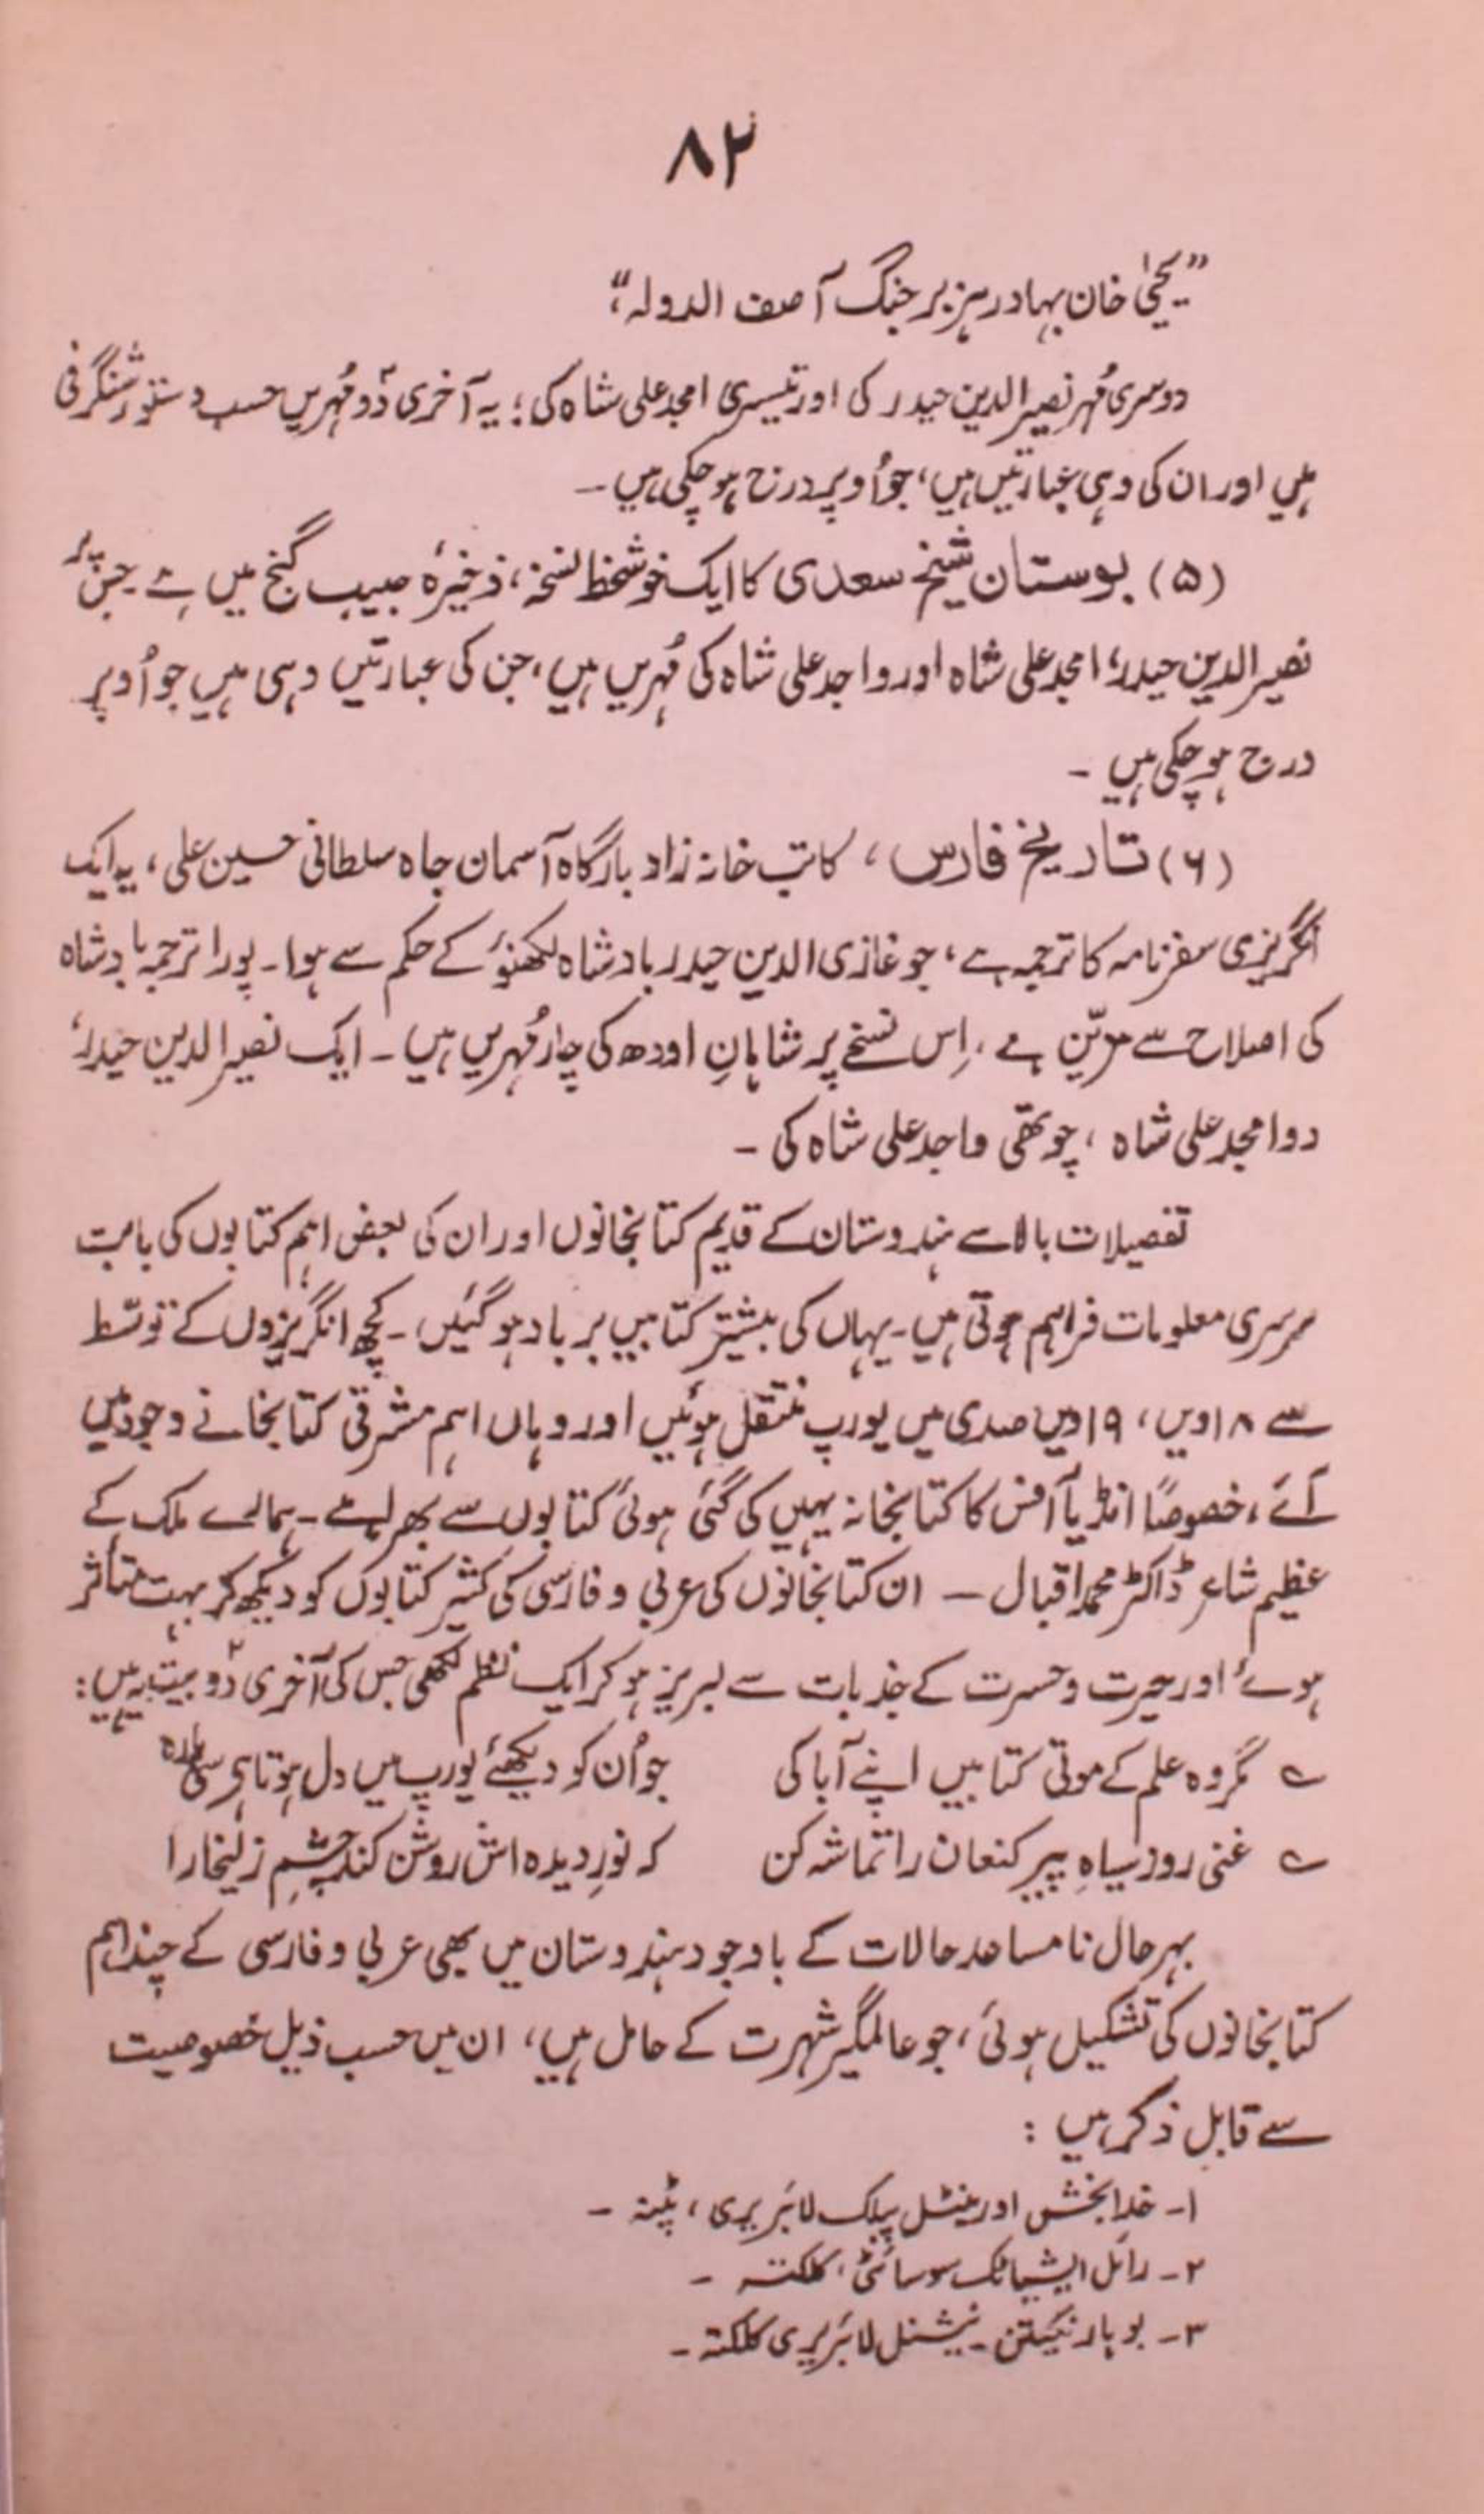 ۸۲
”یحییٰ خان بہادر ہزبر جنگ آصف الدولہ“
دوسری مُہر نصیر الدین حیدر کی اور تیسری امجد علی شاہ کی؛ یہ آخری دو مُہریں حسب دستور شنگرفی
ہیں اور ان کی وہی عبارتیں ہیں، جو اُوپر درج ہو چکی ہیں۔
(۵) بوستان شیخ سعدی کا ایک خوشخط نسخہ، ذخیرۂ حبیب گنج میں ہے جس پر
نصیر الدین حیدر، امجد علی شاہ اور واجد علی شاہ کی مُہریں ہیں، جن کی عبارتیں وہی ہیں جو اُوپر
درج ہو چکی ہیں۔
(۶) تاریخ فارس، کاتب خانہ زاد بارگاہ آسمان جاہ سلطانی حسین علی، یہ ایک
انگریزی سفرنامہ کا ترجمہ ہے، جو غازی الدین حیدر بادشاہ لکھنؤ کے حکم سے ہوا۔ پورا ترجمہ بادشاہ
کی اصلاح سے مزیّن ہے، اِس نسخے پر شاہانِ اودھ کی چار مُہریں ہیں۔ ایک نصیر الدین حیدر،
دو امجد علی شاہ، چوتھی واجد علی شاہ کی۔
تفصیلات بالا سے ہندوستان کے قدیم کتابخانوں اور ان کی بعض اہم کتابوں کی بابت
سرسری معلومات فراہم ہوتی ہیں۔ یہاں کی بیشتر کتابیں برباد ہو گئیں۔ کچھ انگریزوں کے توسّط
سے ۱۸ویں، ۱۹ویں صدی میں یورپ منتقل ہوئیں اور وہاں اہم مشرقی کتابخانے وجود میں
آئے، خصوصًا انڈیا آفس کا کتابخانہ یہیں کی گئی ہوئی کتابوں سے بھرا ہے۔ ہمارے ملک کے
عظیم شاعر ڈاکٹر محمد اقبال — ان کتابخانوں کی عربی و فارسی کی کثیر کتابوں کو دیکھ کر بہت متأثر
ہوئے اور حیرت و حسرت کے جذبات سے لبریز ہو کر ایک نظم لکھی جس کی آخری دو بیت یہ ہیں:
؎ مگر وہ علم کے موتی کتابیں اپنے آبا کی جو اُن کو دیکھئے یورپ میں دل ہوتا ہی سی پارہ
؎ غنی روز سیاہِ پیر کنعان را تماشہ کن کہ نورِ دیدہ اش روشن کند چشمِ زلیخا را
بہرحال نامساعد حالات کے باوجود ہندوستان میں بھی عربی و فارسی کے چند اہم
کتابخانوں کی تشکیل ہوئی، جو عالمگیر شہرت کے حامل ہیں، ان میں حسب ذیل خصوصیت
سے قابل ذکر ہیں:
۱۔ خدا بخش اورینٹل پبلک لائبریری، پٹنہ۔
۲۔ رائل ایشیاٹک سوسائٹی، کلکتہ۔
۳۔ بوہار سیکشن نیشنل لائبریری کلکتہ۔